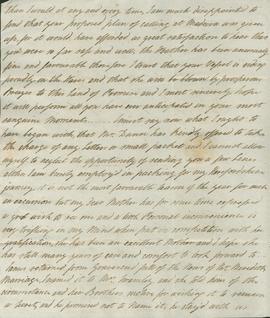 than I would at any and every time, I am much disappointed to
find that your proposed plan of calling at Madeira was given
up, for it would have afforded us great satisfaction to hear that
you were so far safe and well; the Weather has been uncommonly
fine and favourable therefore I trust that your Vessel is riding
proudly on the Waves and that she will be blown by prosperous
Breezes to the Land of Promise and I most sincerely hope
it will perform all you have ever anticipated in your most
sanguine Moments. I must say now what I ought to
have began with that Mr. has kindly offered to take
the charge of any letters or small packet and I cannot allow
myself to neglect the opportunity of sending you a few lines
altho' I am busily employed in packing for my
journey, it is not the most favourable season of the year for such
an excursion but my dear Mother has for some time expressed
a great wish to see me and a little Personal inconvenience is
very trifling in my Mind when put in competition with her
gratification, she has been an excellent Mother and I hope she
has still many years of ease and comfort to look forward to.
James returned from full of the News of
Marriage, I named it to Mr. and she told him of the
circumstance and her Brothers motive for wishing it to remain
a Secret, and he promised not to name it, he staid with us